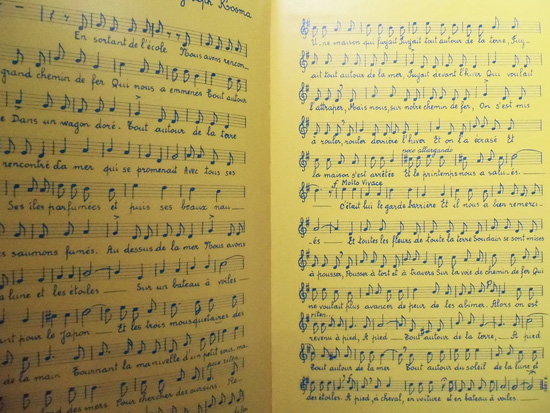 Joseph Kosma
En sortant de l'école Nous avons rencon_
grand chemin de fer Qui nous a emmenés Tout autour
e Dans un wagon doré. Tout autour de la terre
rencontré la mer qui se promenait Avec tous ses
Ses îles parfumées et puis ses beaux nau__
saumons fumés. Au dessus de la mer Nous avons
a lune et les étoiles__ Sur un bateau à voiles__
ant pour le Japon__ Et les trois mousquetaires des
de la main Tournant la manivelle d'un petit sous-ma_
des mers Pour chercher des oursins Re_
U_ne maison qui fuyait Fuyait tout autour de la terre, Fuy_
ait tout autour de la mer, Fuyait devant l'hiver Qui voulait
l'attraper, Mais nous, sur notre chemin de fer, On s'est mis
à rouler, rouler derrière l'hiver Et on l'a écrasé Et
poco allargando
la maison s'est arrêtée Et le printemps nous a salu_és.__
f Molto Vivace
C'était lui le garde barrière Et il nous a bien remerci_
_és__ Et toutes les fleurs de toute la terre Soudain se sont mises
à pousser, Pousser à tort et à travers Sur la voie du chemin de fer Qui
ne voulait plus avancer de peur de les abîmer. Alors on est
riten.
revenu à pied, A pied__ Tout autour de la terre,__ A pied
Tout autour de la mer Tout autour du soleil de la lune et
des étoiles. A pied, à cheval, en voiture et en bateau à voiles.__